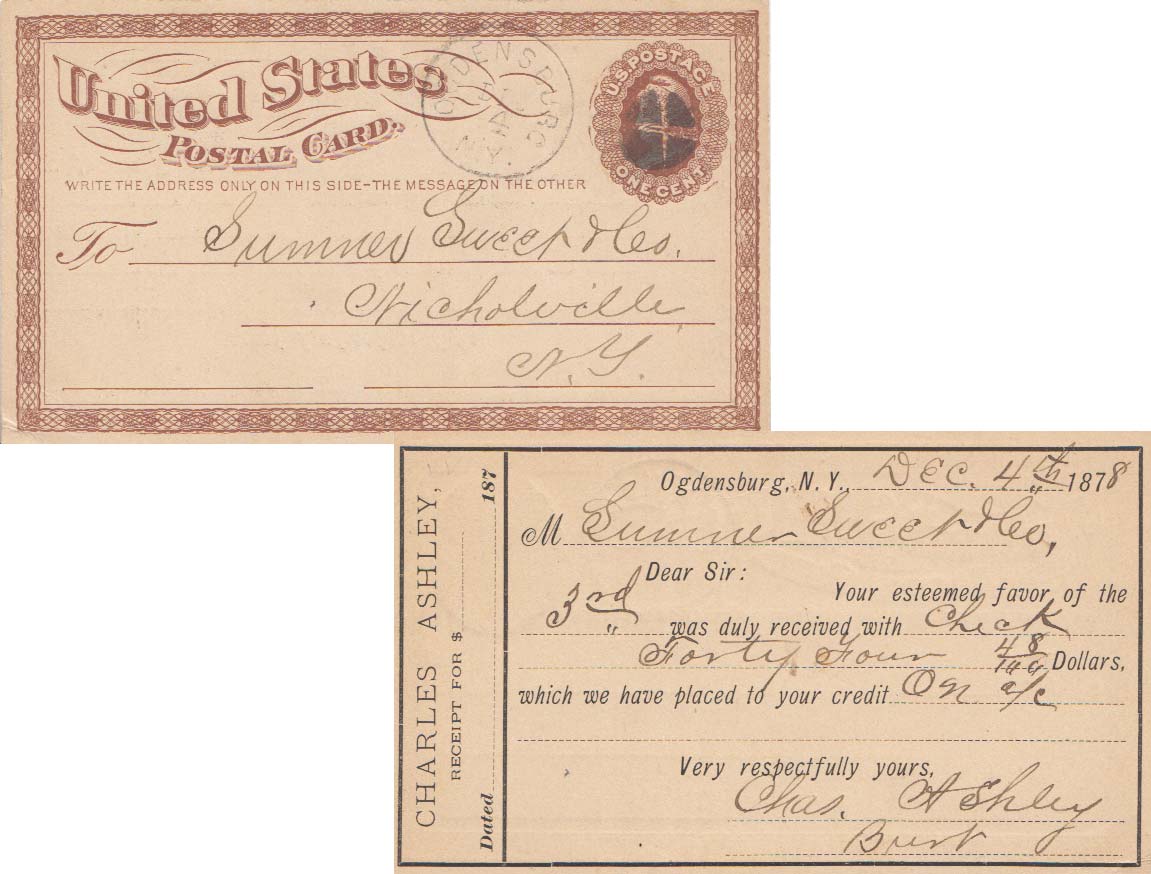 United States
POSTAL CARD.
WRITE THE ADDRESS ONLY ON THIS SIDE-THE MESSAGE ON THE OTHER
OGDENSBURG
DEC
4
N.Y.
U.S. POSTAGE
ONE CENT
To Sumner Sweet & Co.
Nicholville
N.Y.
CHARLES ASHLEY,
RECEIPT FOR $
Dated 187
Ogdensburg, N. Y., DEC. 4th 1878
M Sumner Sweet & Co,
Dear Sir:
Your esteemed favor of the
3rd was duly received with Check
Forty Four 48/100 Dollars,
which we have placed to your credit On a/c
Very respectfully yours,
Chas. Ashley